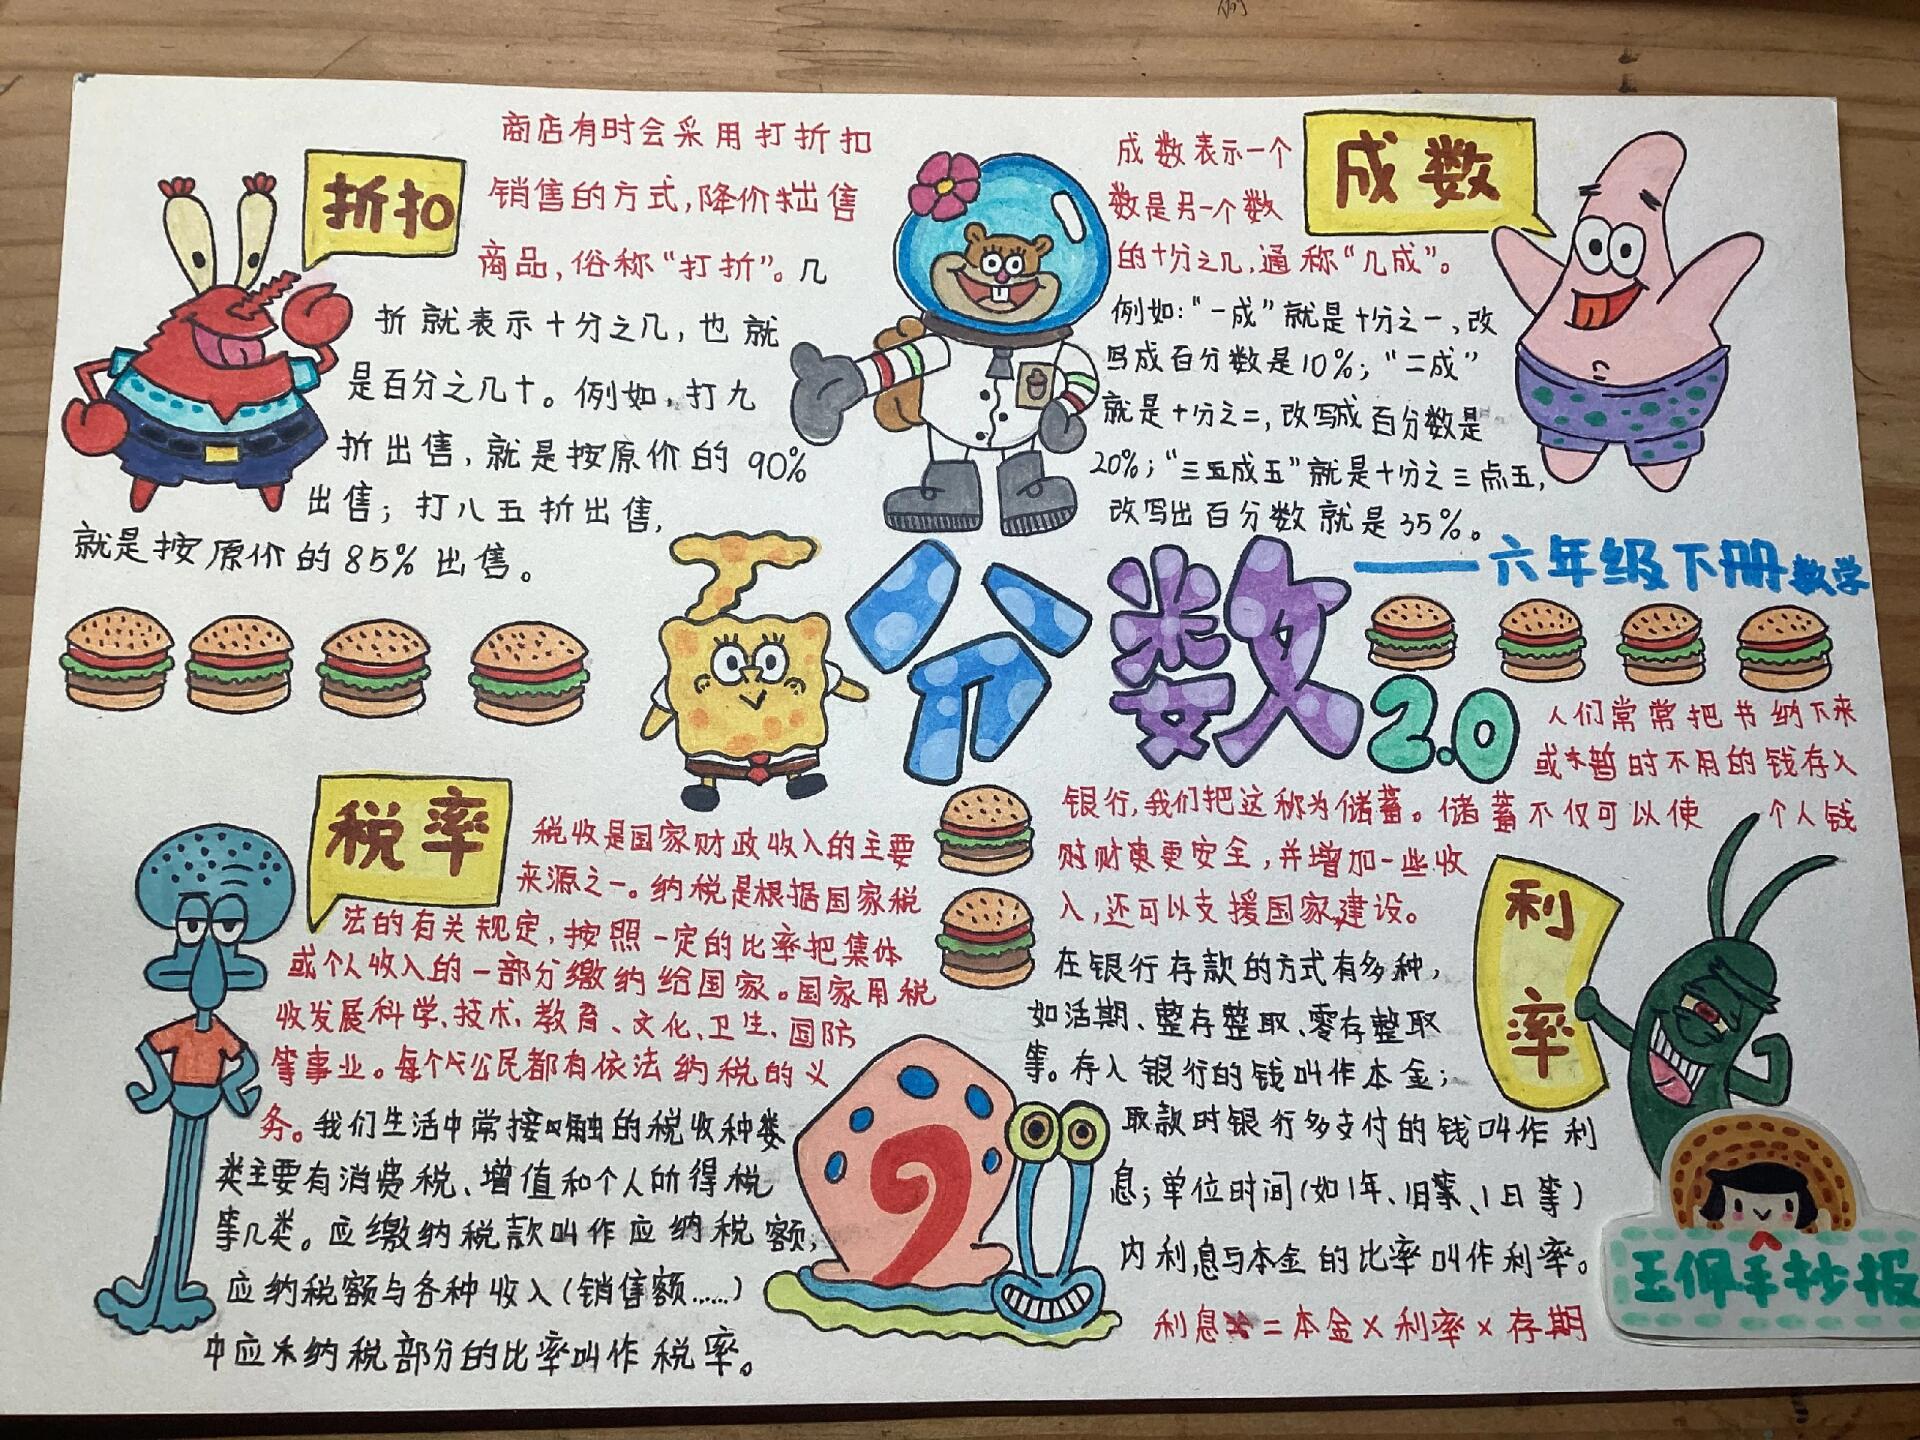 折扣
商店有时会采用打折扣
销售的方式,降价出售
商品,俗称“打折”。几
折就表示十分之几,也就
是百分之几十。例如,打九
折出售,就是按原价的90%
出售;打八五折出售,
就是按原价的85%出售。
成数
成数表示一个
数是另一个数
的十分之几,通称“几成”。
例如:“一成”就是十分之一,改
写成百分数是10%;“二成”
就是十分之二,改写成百分数是
20%;“三五成五”就是十分之三点五,
改写出百分数就是35%。
百分数2.0
——六年级下册数学
税率
税收是国家财政收入的主要
来源之一。纳税是根据国家税
法的有关规定,按照一定的比率把集体
或个人收入的一部分缴纳给国家。国家用税
收发展科学、技术、教育、文化、卫生、国防
等事业。每个公民都有依法纳税的义
务。我们生活中常接触的税收种娄
类主要有消费税、增值和个人所得税
等几类。应缴纳税款叫作应纳税额,
应纳税额与各种收入(销售额……)
中应纳税部分的比率叫作税率。
利率
人们常常把书纳下来
或暂时不用的钱存入
银行,我们把这称为储蓄。储蓄不仅可以使 个人钱
财更安全,并增加一些收
入,还可以支援国家建设。
在银行存款的方式有多种,
如活期、整存整取、零存整取
等。存入银行的钱叫作本金;
取款时银行多支付的钱叫作利
息;单位时间(如1年、1日等)
内利息与本金的比率叫作利率。
利息=本金×利率×存期
王佩手抄报